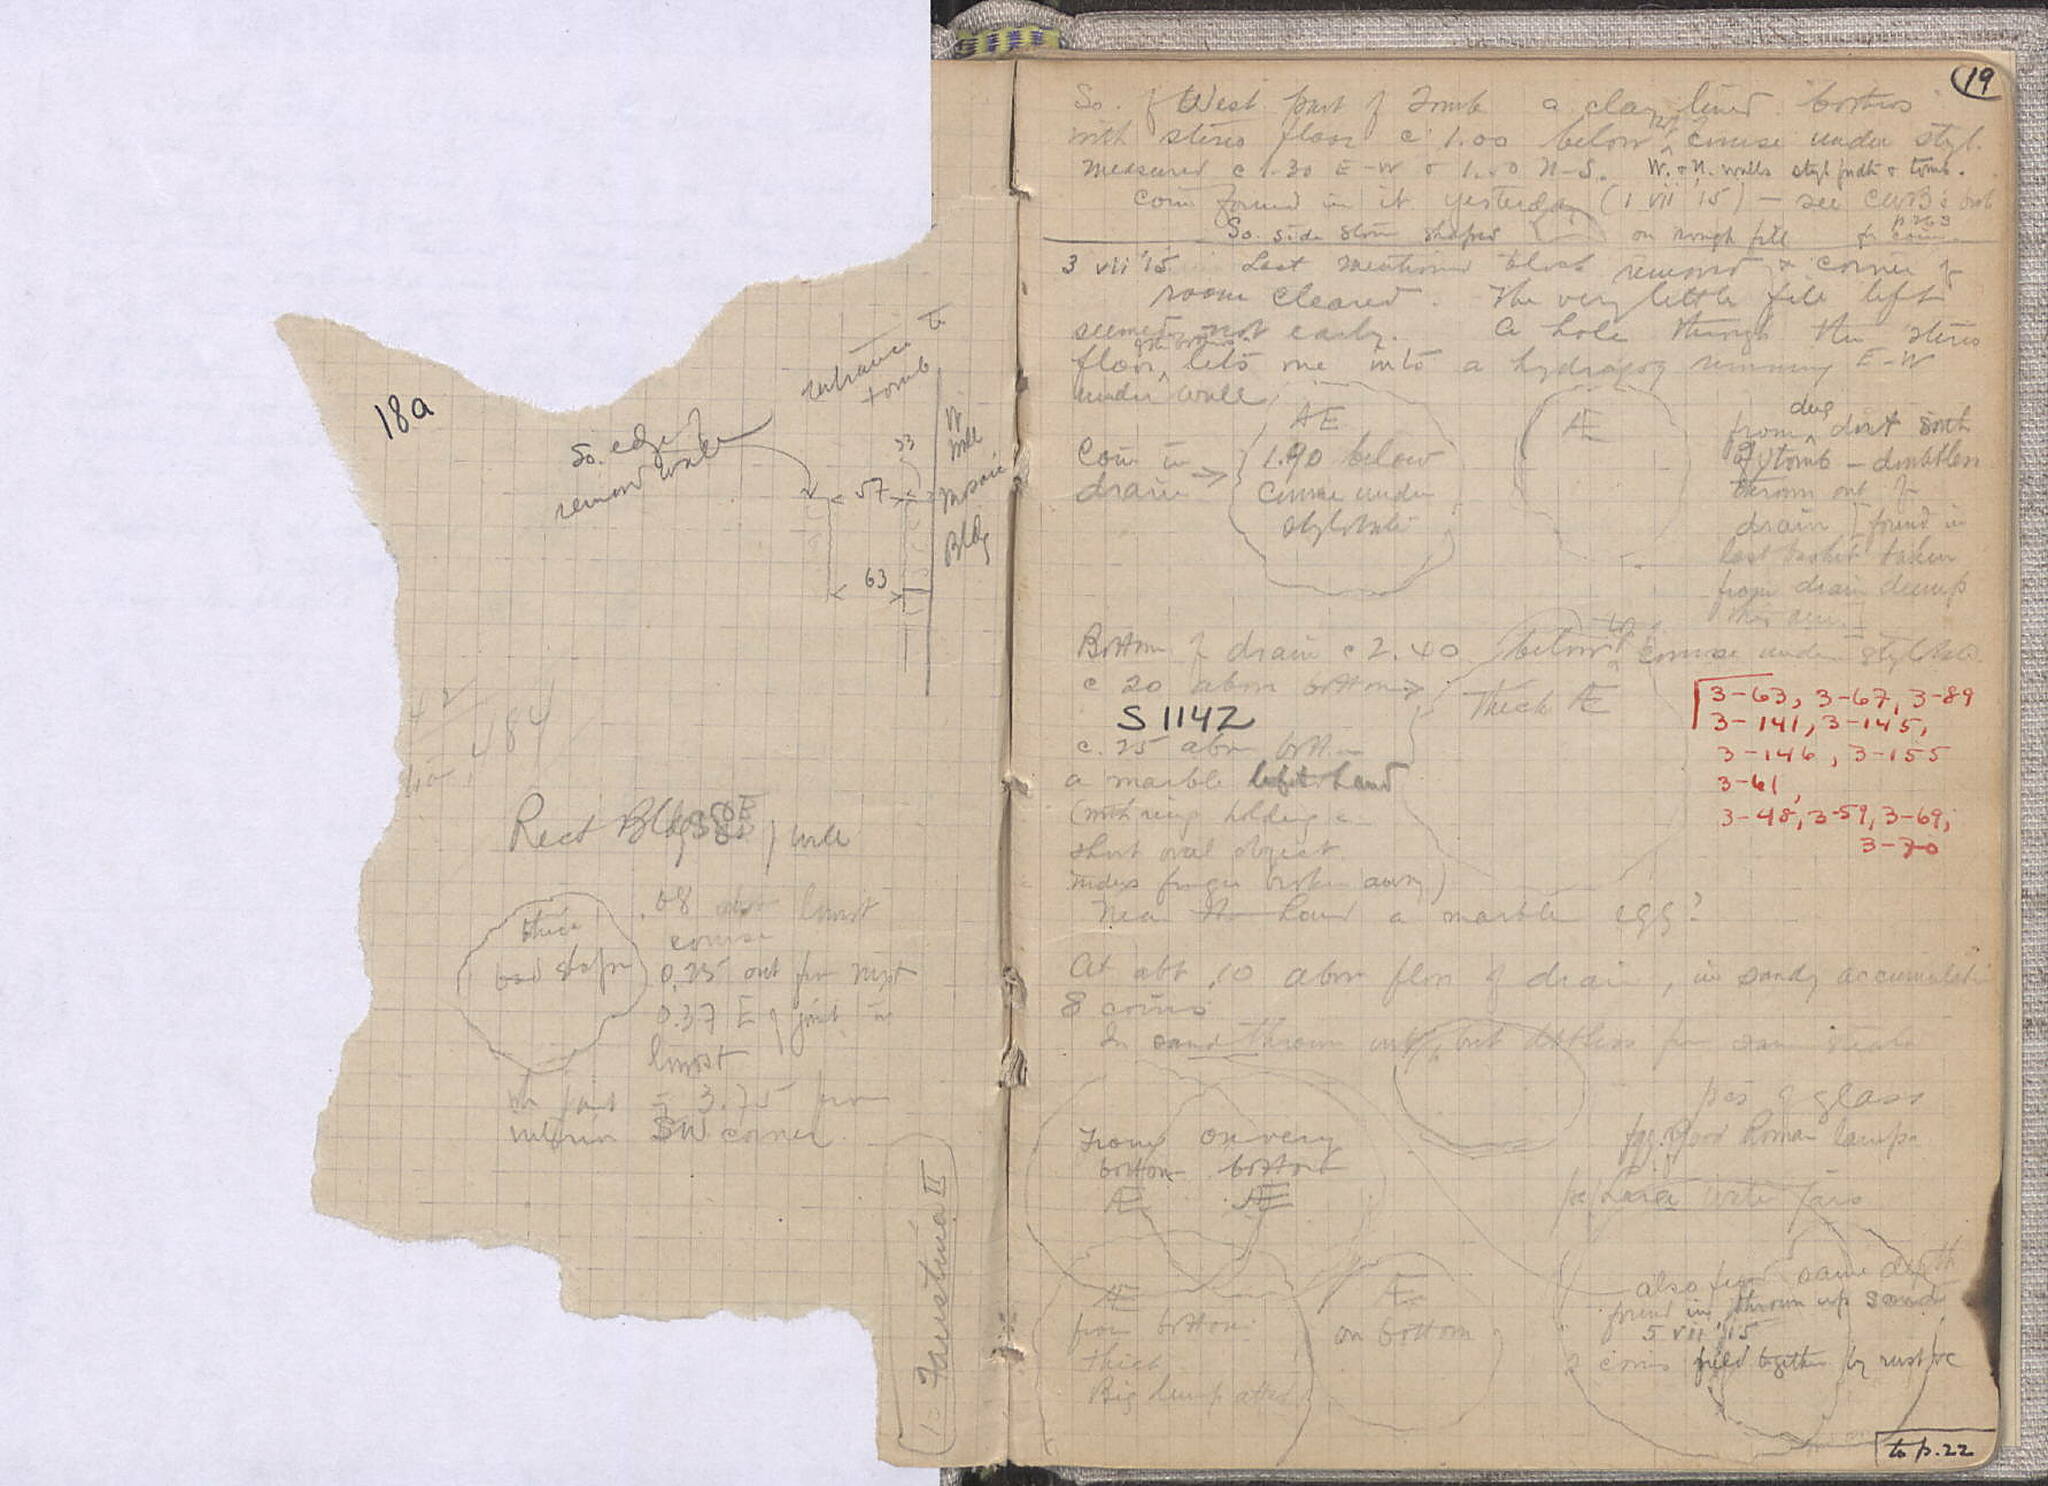 18a
entrance to
tomb
So. edge of
removed wall
33
57
63
W.
Wall
Mosaic
Bldg
Rect Bldg
wall
thick
bad shape
.08 above lowest
course
0.25 out from
0.37 E of joint in
lowest
joint = 3.75 from
interior SW corner
Faustina II
19
So. of West part of Tomb a clay lined bothros
with stereo floor c 1.00 below top course under styl.
Measured c 1.30 E-W & N-S. W. & N. walls styl & tomb.
Coin found in it yesterday (1 vii '15) – see CWB's
So. side stone shaped on rough fill for coin
3 vii '15 Last mentioned block removed & corner of
room cleared. The very little fill left
seemed not early. A hole through the stereo
floor of the bothros lets one into a running E-W
under wall
Coin in
drain →
AE
1.90 below
course under
stylobate
AE
from dug dirt south
of tomb – doubtless
thrown out of
drain found in
last basket taken
from drain dump
Bottom of drain c 2.40 below top course under stylobate.
c 20 above bottom →
Thick AE
S 1142
c. 25 above bottom
a marble left hand
(with ring holding a
short oval object
index finger broken away)
Near hand a marble egg?
3-63, 3-67, 3-89
3-141, 3-145,
3-146, 3-155
3-61,
3-48, 3-59, 3-69,
3-70
At abt .10 above floor of drain, in sandy accumulation
8 coins
In sand thrown out, but doubtless from same
From bottom
AE
on very bottom
AE
pcs of glass
good Roman lamps
water jars
AE
from bottom
thick
Big lump
AE
on bottom
also from same depth
found in thrown up sand
5 vii '15
2 coins held together by rust
to p. 22